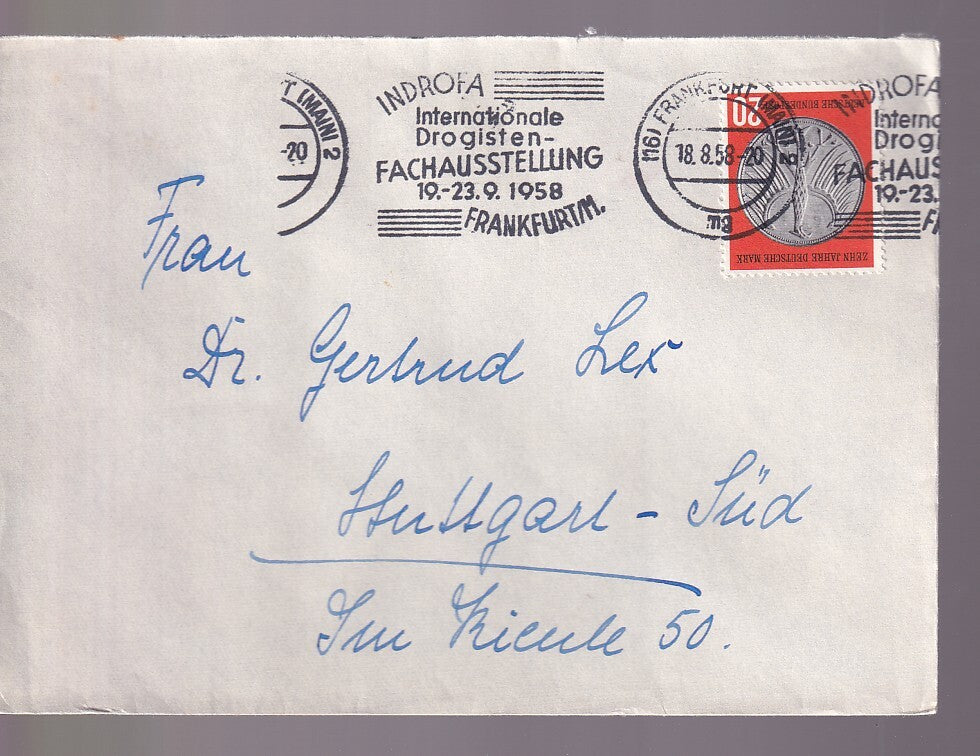 T (MAIN) 2
-20
INDROFA
Internationale
Drogisten-
FACHAUSSTELLUNG
19.-23.9.1958
FRANKFURT/M.
(16) FRANKFURT (MAIN) 2
18.8.58-20
bu
20
DEUTSCHE BUNDESPOST
ZEHN JAHRE DEUTSCHE MARK
INDROFA
Interna
Drogi
FACHAUS
19.-23.
F
Frau
Dr. Gertrud Lex
Stuttgart - Süd
Im 50.